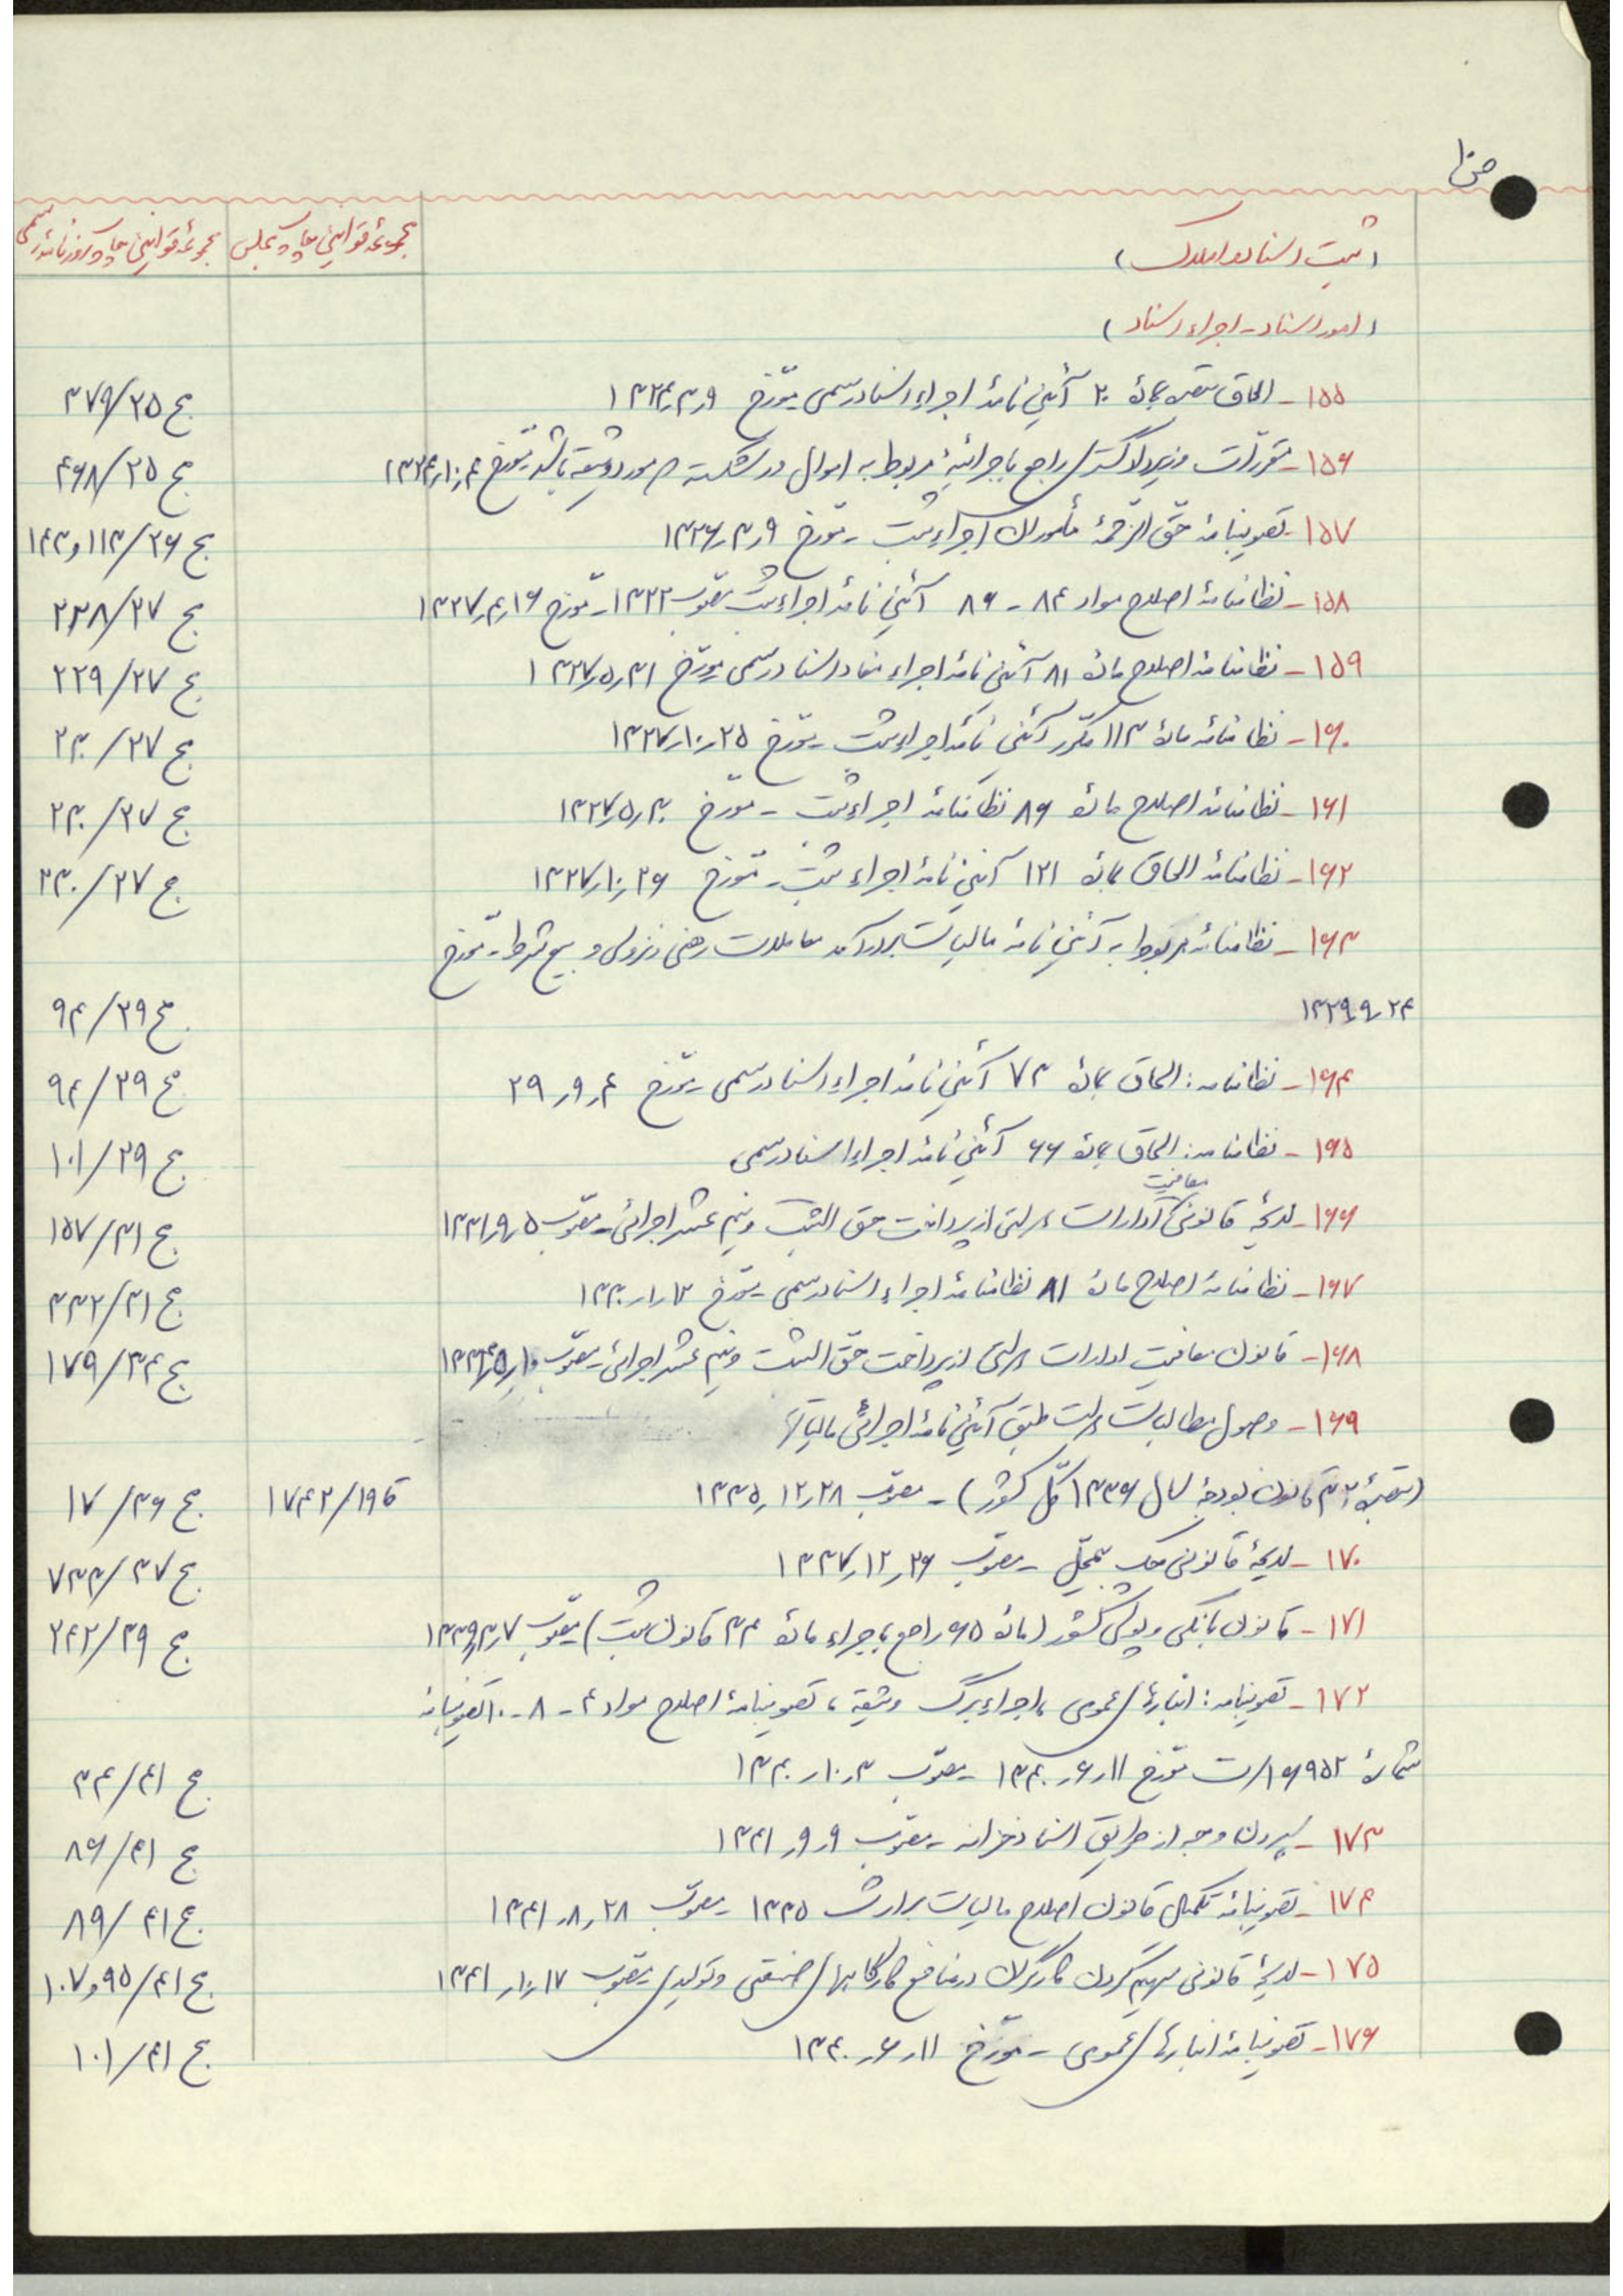 ص ۱۰
(ثبت اسناد و املاک) مجموعهٔ قوانین چاپ مجلس مجموعهٔ قوانین چاپ روزنامهٔ رسمی
(امور اسناد - اجراء اسناد)
۱۵۵ - الحاق بمادهٔ ۲۰ آئین نامهٔ اجراء اسناد رسمی مورّخ ۱۳۲۴٫۳٫۹ ج ۳۷۹/۲۵
۱۵۶ - مقرّرات وزیر دادگستری راجع باجرائیهٔ مربوط به اموال ورشکسته مورد وثیقه باشد مورّخ ۱۳۲۴٫۱۰٫۴ ج ۴۶۸/۲۵
۱۵۷ - تصویبنامهٔ حقّ الزّحمهٔ مأموران اجراء ثبت - مورّخ ۱۳۲۶٫۳٫۹ ج ۱۱۳/۲۶ و ۱۴۳
۱۵۸ - نظامنامهٔ اصلاح مواد ۸۴ - ۸۶ آئین نامهٔ اجراء ثبت مصوّب ۱۳۲۲ - مورّخ ۱۳۲۷٫۴٫۱۶ ج ۲۳۸/۲۷
۱۵۹ - نظامنامهٔ اصلاح مادهٔ ۸۱ آئین نامهٔ اجراء مفاد اسناد رسمی مورّخ ۱۳۲۷٫۵٫۳۱ ج ۲۲۹/۲۷
۱۶۰ - نظامنامهٔ مادهٔ ۱۱۳ مکرّر آئین نامهٔ اجراء ثبت - مورّخ ۱۳۲۷٫۱۰٫۲۵ ج ۲۳۰/۲۷
۱۶۱ - نظامنامهٔ اصلاح مادهٔ ۸۶ نظامنامهٔ اجراء ثبت - مورّخ ۱۳۲۷٫۵٫۳۰ ج ۲۳۰/۲۷
۱۶۲ - نظامنامهٔ الحاق بمادهٔ ۱۲۱ آئین نامهٔ اجراء ثبت - مورّخ ۱۳۲۷٫۱۰٫۲۶ ج ۲۳۰/۲۷
۱۶۳ - نظامنامهٔ مربوط به آئین نامهٔ مالیات بردرآمد معاملات رهنی و نزولی و بیع شرط - مورّخ
۱۳۲۹٫۹٫۲۴ ج ۹۴/۲۹
۱۶۴ - نظامنامه: الحاق بمادهٔ ۷۳ آئین نامهٔ اجراء اسناد رسمی - مورّخ ۲۹٫۹٫۴ ج ۹۴/۲۹
۱۶۵ - نظامنامه: الحاق بمادهٔ ۶۶ آئین نامهٔ اجراء اسناد رسمی ج ۱۰۱/۲۹
۱۶۶ - لایحهٔ قانونی معافیت ادارات دولتی از پرداخت حق الثبت و نیم عشر اجرائی - مصوّب ۱۳۳۱٫۹٫۵ ج ۱۵۷/۳۱
۱۶۷ - نظامنامهٔ اصلاح مادهٔ ۸۱ نظامنامهٔ اجراء اسناد رسمی - مورّخ ۱۳۳۰٫۱٫۱۲ ج ۳۳۲/۳۱
۱۶۸ - قانون معافیت ادارات دولتی از پرداخت حقّ الثبت و نیم عشر اجرائی - مصوّب ۱۳۳۴٫۵٫۱۰ ج ۱۷۹/۳۴
۱۶۹ - وصول مطالبات دولت طبق آئین نامهٔ اجرائی مالیاتها
(تبصرهٔ ۳۲ قانون بودجهٔ سال ۱۳۳۶ کلّ کشور) - مصوّب ۱۳۳۵٫۱۲٫۲۸ ق ۱۷۴۲/۱۹ ج ۱۷/۳۶
۱۷۰ - لایحهٔ قانونی چک بی محلّ - مصوّب ۱۳۳۷٫۱۲٫۲۶ ج ۷۳۳/۳۷
۱۷۱ - قانون بانکی و پولی کشور (مادهٔ ۶۵ راجع باجراء مادهٔ ۳۴ قانون ثبت) مصوّب ۱۳۳۹٫۳٫۷ ج ۲۴۲/۳۹
۱۷۲ - تصویبنامه: انبارهای عمومی، اجراء برگ وثیقه، تصویبنامهٔ اصلاح مواد ۴ - ۸ - ۱۰ تصویبنامه
شمارهٔ ۱۶۹۵۲/ت مورّخ ۱۳۴۰٫۶٫۱۱ - مصوّب ۱۳۴۰٫۱۰٫۳ ج ۳۴/۴۱
۱۷۳ - سپردن وجه از طریق اسناد خزانه - مصوّب ۱۳۴۱٫۹٫۹ ج ۸۶/۴۱
۱۷۴ - تصویبنامهٔ تکمیل قانون اصلاح مالیات برارث ۱۳۳۵ - مصوّب ۱۳۴۱٫۸٫۲۸ ج ۸۹/۴۱
۱۷۵ - لایحهٔ قانونی سهیم کردن کارگران در منافع کارگاههای صنعتی و تولیدی مصوّب ۱۳۴۱٫۱۰٫۱۷ ج ۹۵/۴۱ و ۱۰۷
۱۷۶ - تصویبنامهٔ انبارهای عمومی - مورّخ ۱۳۴۰٫۶٫۱۱ ج ۱۰۱/۴۱